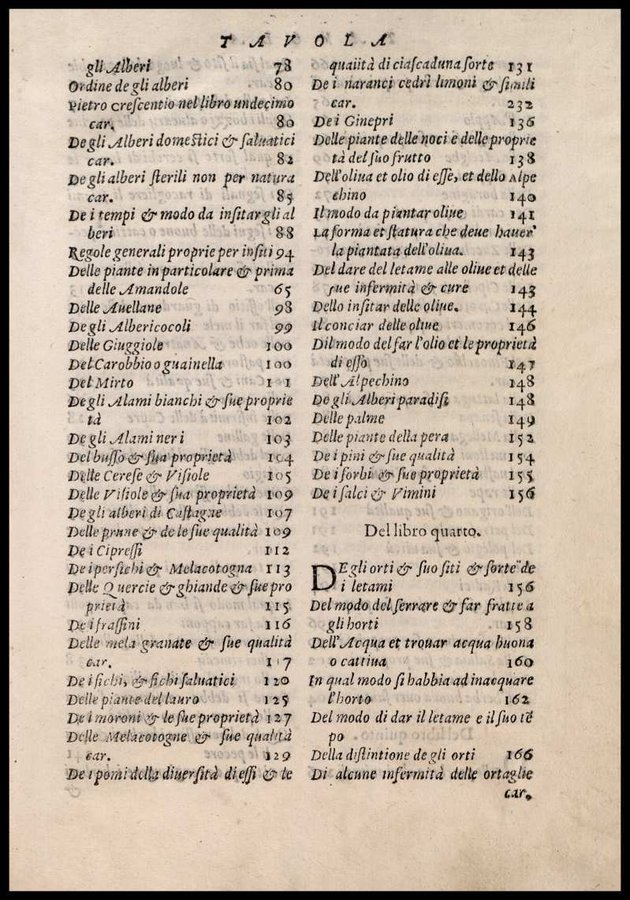 TAVOLA
gli Alberi 78
Ordine de gli alberi 80
Pietro crescentio nel libro undecimo
car. 80
De gli Alberi domestici & saluatici
car. 82
De gli alberi sterili non per natura
car. 85
De i tempi & modo da insitar gli al
beri 88
Regole generali proprie per insiti 94
Delle piante in particolare & prima
delle Amandole 65
Delle Auellane 98
De gli Albericocoli 99
Delle Giuggiole 100
Del Carobbio o guainella 100
Del Mirto 1 1
De gli Alami bianchi & sue proprie
tà 102
De gli Alami neri 103
Del busso & sua proprietà 104
Delle Cerese & Visiole 105
Delle Visiole & sua proprietà 109
De gli alberi di Castagne 107
Delle prune & de le sue qualità 109
De i Cipressi 112
De i persichi & Melacotogna 113
Delle Quercie & ghiande & sue pro
prietà 115
De i frassini 116
Delle mela granate & sue qualità
car. 117
De i fichi, & fichi saluatici 120
Delle piante del lauro 125
De i moroni & le sue proprietà 127
Delle Melacotogne & sue qualità
car. 129
De i pomi della diuersità di essi & le
quaiità di ciascaduna sorte 131
De i naranci cedri limoni & simili
car. 232
De i Ginepri 136
Delle piante delle noci e delle proprie
tà del suo frutto 138
Dell'oliua et olio di esse, et dello Alpe
chino 140
Il modo da piantar oliue 141
La forma et statura che deue hauer
la piantata dell'oliua. 143
Del dare del letame alle oliue et delle
sue infermità & cure 143
Dello insitar delle oliue. 144
Il conciar delle oliue 146
Dil modo del far l'olio et le proprietà
di esso 147
Dell'Alpechino 148
De gli Alberi paradisi 148
Delle palme 149
Delle piante della pera 152
De i pini & sue qualità 154
De i sorbi & sue proprietà 155
De i salci & Vimini 156
Del libro quarto.
DE gli orti & suo siti & sorte de
i letami 156
Del modo del serrare & far fratte a
gli horti 158
Dell'Acqua et trouar acqua buona
o cattiua 160
In qual modo si habbia ad inacquare
l'horto 162
Del modo di dar il letame e il suo tē
po
Della distintione de gli orti 166
Di alcune infermità delle ortaglie
car.